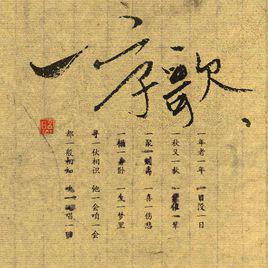 一字歌
一年老一年 一日没一日
一秋又一秋 一辈催一辈
一聚一 一喜一伤悲
一榻一身卧 一生一梦里
寻一伙相识 他一会咱一会
都一般相知 吹一回唱一回